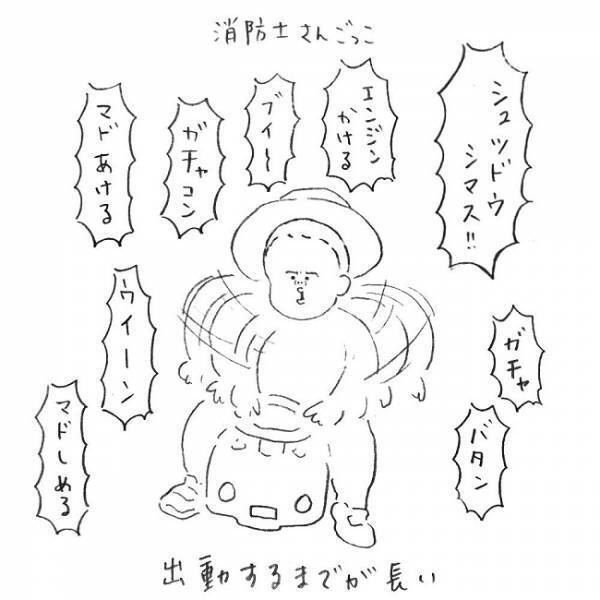 消防士さんごっこ
シュツドウ
シマス!!
ガチャ
バタン
エンジン
かける
ブイ〜
ガチャコン
マドあける
ウイーン
マドしめる
出動するまでが長い